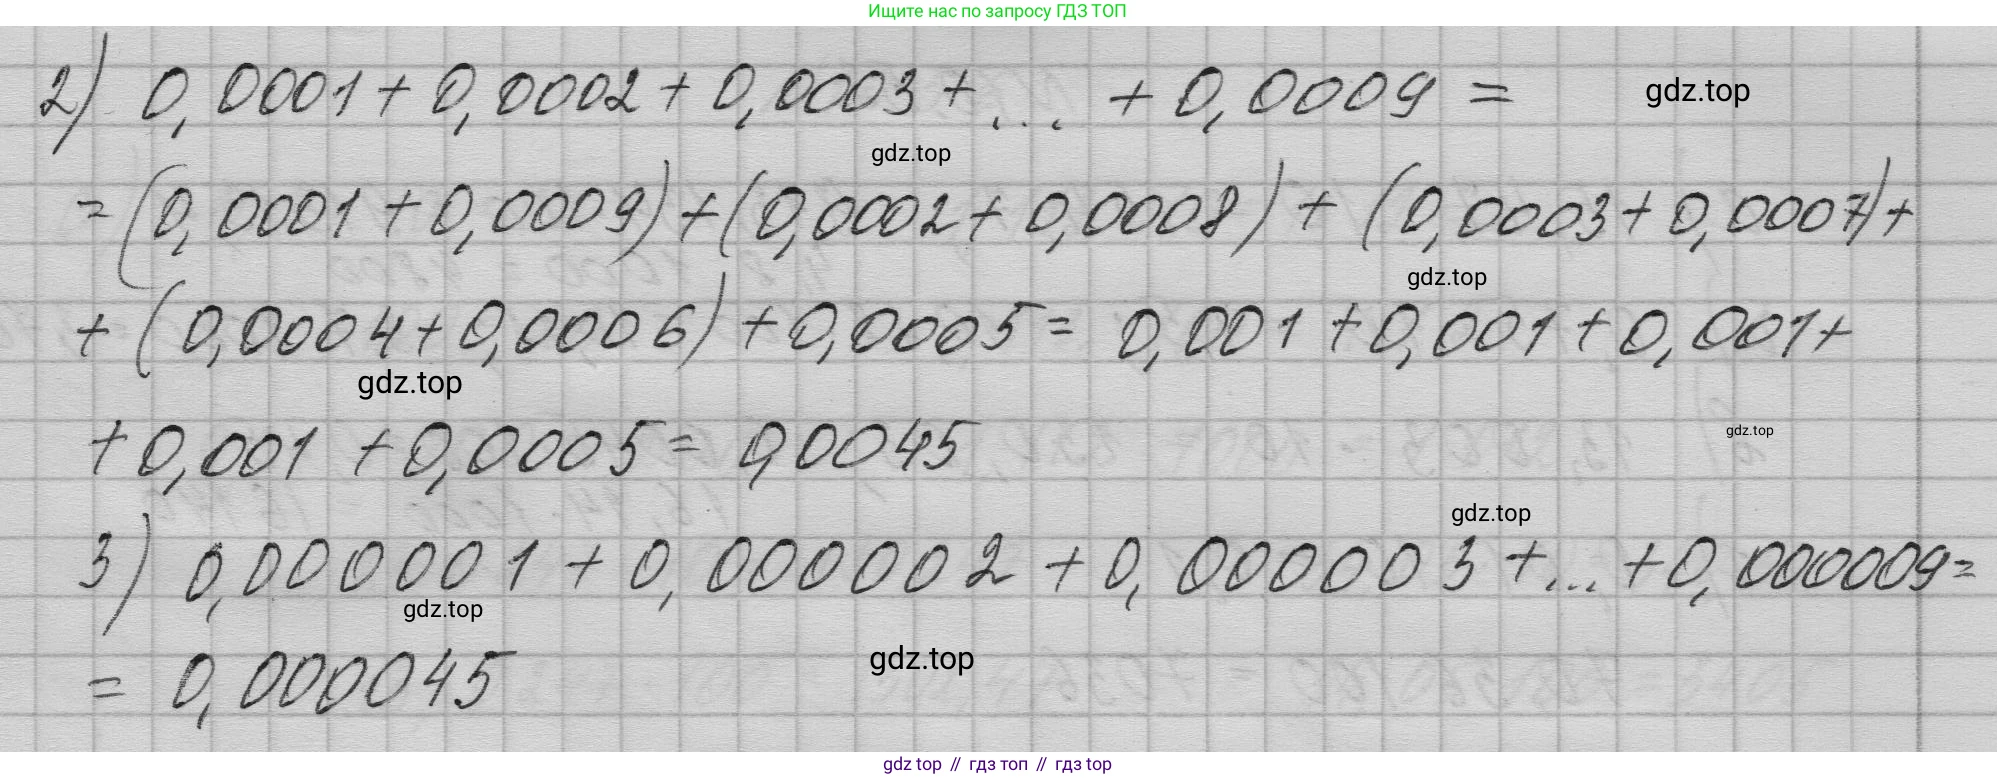 Ищите нас по запросу ГДЗ ТОП
2) 0,0001 + 0,0002 + 0,0003 + ... + 0,0009 =
gdz.top
gdz.top
= (0,0001 + 0,0009) + (0,0002 + 0,0008) + (0,0003 + 0,0007) +
gdz.top
+ (0,0004 + 0,0006) + 0,0005 = 0,001 + 0,001 + 0,001 +
gdz.top
+ 0,001 + 0,0005 = 0,0045
gdz.top
gdz.top
3) 0,000001 + 0,000002 + 0,000003 + ... + 0,000009 =
gdz.top
= 0,000045
gdz.top
gdz top // гдз топ // гдз top